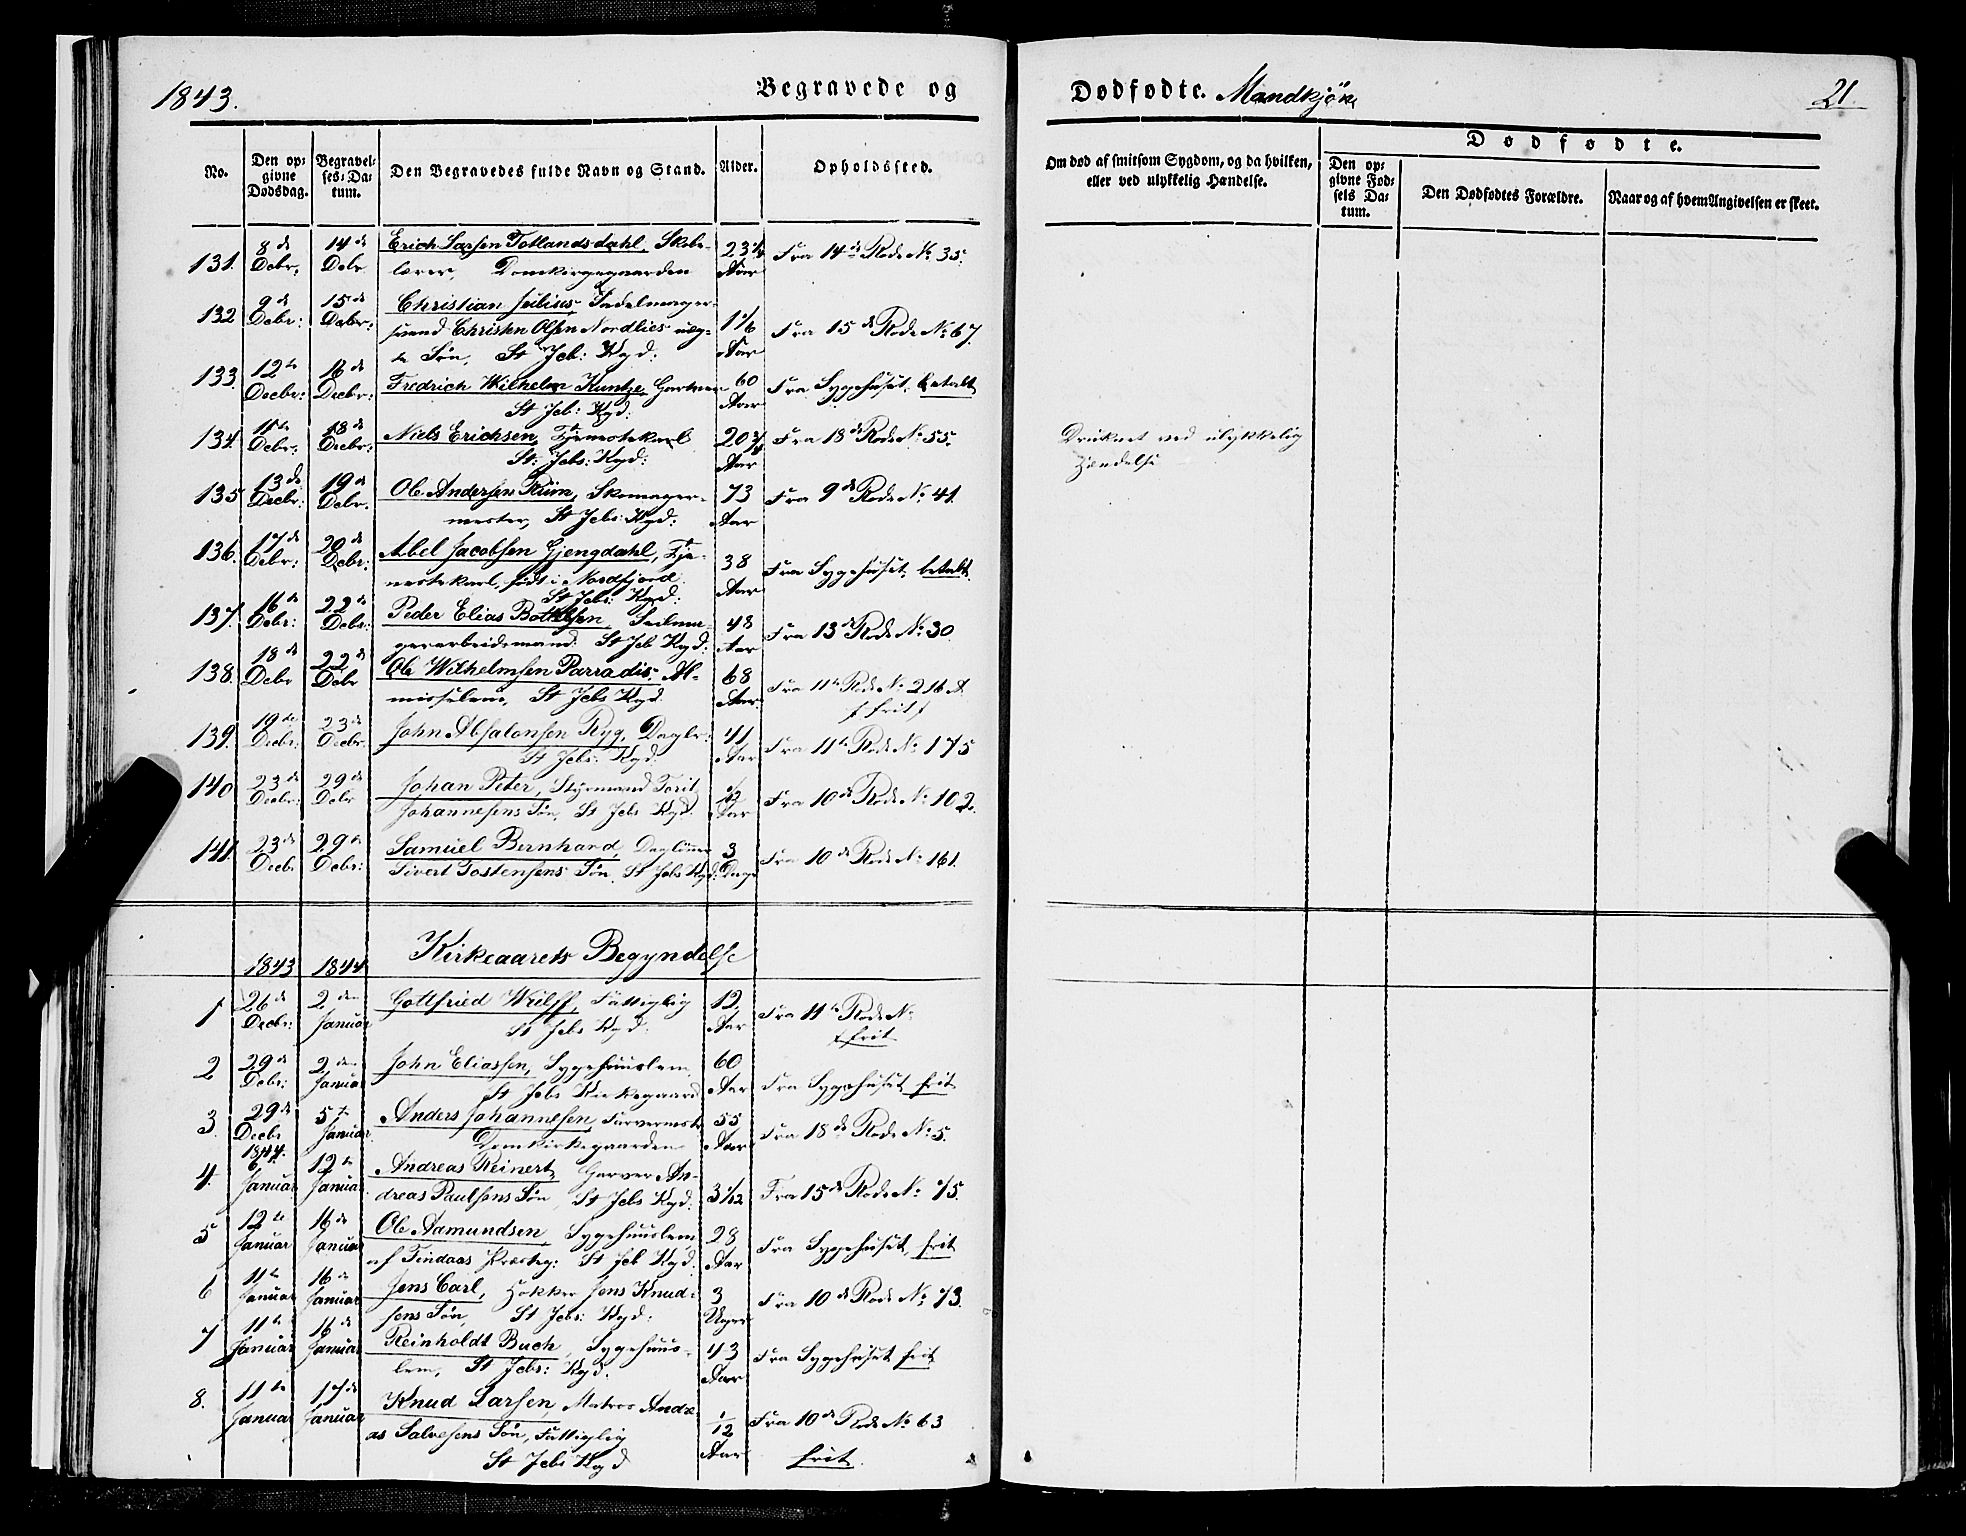 1843.
Begravede og
Dødfødte. Mandkjøn
21.
No.
Den opgivne Dødsdag.
Begravelses-Datum.
Den Begravedes fulde Navn og Stand.
Alder.
Opholdssted.
Om død af smitsom Sygdom, og da hvilken, eller ved ulykkelig Hændelse.
Dødfødte.
Den opgivne Fødsels Datum.
Den Dødfødtes Forældre.
Naar og af hvem Angivelsen er skeet.
131. 8de Debr. 14de Debr. Erich Larsen Totlandsdahl, Skolelærer, Domkirkegaarden 23 Aar Fra 14de Rode No 35.
132 9de Debr: 15de Debr: Christian Julius, Sadelmagersvend Christen Olsen Nordlies Søn, St Jeb: Kgd: 1 1/6 Aar Fra 15de Rode No 67.
133. 12te Decbr: 16de Decbr: Fredrich Wilhelm Kuntze, Gartner St Jeb: Kgd: 60 Aar Fra Sygehuset, betalt
134. 11te Debr: 18de Decbr: Niels Erichsen, Tjenestekarl St: Jebs: Kgd: 20 Aar Fra 18de Rode No 55.
Druknet ved ulykkelig
Hændelse
135 13de Decbr: 19de Debr. Ole Andersen Riim, Skomagermester, St Jebs: Kgd: 73 Aar Fra 9de Rode No 41.
136. 17de Debr: 20de Debr: Abel Jacobsen Gjengdahl, Tjenestekarl, født i Nordfjord St Jebs: Kgd: 38 Aar Fra Sygehuset, betalt
137. 16de Debr: 22de Debr: Peder Elias Bottelsen, Seilmagerarbeidsmand St Jeb Kgd: 48 Aar Fra 13de Rode No 30
138. 18de Debr 22de Debr Ole Wilhelmsen Parradis, Almisselem, St Jebs Kgd. 68 Aar. Fra 11te Rode No 216 A. frit
139. 19de Decbr: 23de Decbr. John Absalonsen Ryg, Daglr: St Jebs: Kgd: 41 Aar Fra 11te Rode No 175
140 23de Decbr: 29de Debr Johan Peter, Styrmand Torit Johannesens Søn, St Jebs Kgd. Aar Fra 10de Rode No 102.
141. 23de Decbr 29de Debr: Samuel Bernhard, Daglønner Sivert Tostensens Søn, St Jebs Kgd: 3 Dage Fra 10de Rode No 161.
1843 1844 Kirkeaarets Begyndelse
1 26de Decbr: 2den Januar Gottfried Wulff, Fattiglig St Jebs Kgd: 12 Aar Fra 11te Rode No frit
2 29de Debr: 2den Januar John Eliassen, Sygehuuslem, St Jebs Kirkegaard 60 Aar Fra Sygehuset frit
3. 29de Decbr 5te Januar. Anders Johannesen, Farvermstr Domkirkegaarden 55 Aar Fra 18de Rode No 5.
1844.
4. 6te Januar 12te Januar Andreas Reinert, Garver Andreas Paulsens Søn, St Jebs Kgd: 3 1/12 Fra 15de Rode No 75.
5 12te Januar 16de Januar Ole Aamundsen, Sygehuuslem af Findaas Præsteg: St Jeb Kgd. 28 Aar Fra Sygehuset, frit
6 11te Januar 16de Januar Jens Carl, Høkker Jens Knudsens Søn, St Jebs: Kgd: 3 Uger Fra 10de Rode No 73.
7 11te Januar 16de Januar Reinholdt Buch, Sygehuuslem, St Jebs: Kgd. 43 Aar Fra Sygehuset frit
8. 11te Januar 17de Januar Knud Larsen, Matros Andreas Salvesens Søn, Fattiglig St Jebs Kgd 1/12 Aar Fra 10de Rode No 63 frit.